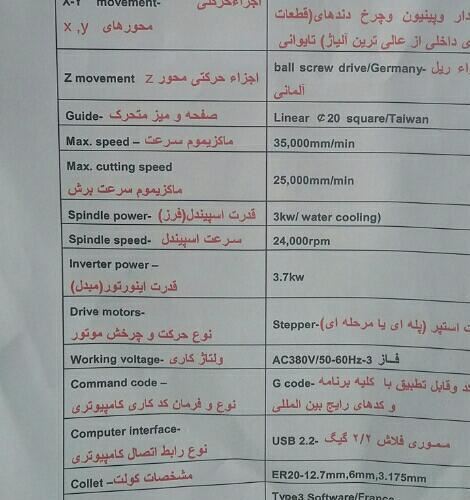 X-Y movement- اجزاءحرکتی
محورهای x ,y
دار وپینیون وچرخ دندهای(قطعات
ی داخلی از عالی ترین آلیاژ) تایوانی
Z movement اجزاء حرکتی محور z
ball screw drive/Germany- اء ریل
آلمانی
Guide- صفحه و میز متحرک
Linear ₵20 square/Taiwan
Max. speed – ماکزیموم سرعت
35,000mm/min
Max. cutting speed
ماکزیموم سرعت برش
25,000mm/min
Spindle power- قدرت اسپیندل(فرز)
3kw/ water cooling)
Spindle speed- سرعت اسپیندل
24,000rpm
Inverter power –
قدرت اینورتور(مبدل)
3.7kw
Drive motors-
نوع حرکت و چرخش موتور
Stepper-ت استپر (پله ای یا مرحله ای)
Working voltage- ولتاژ کاری
AC380V/50-60Hz-3 فاز
Command code –
نوع و فرمان کد کاری کامپیوتری
G code- کد وقابل تطبیق با کلیه برنامه
و کدهای رایج بین المللی
Computer interface-
نوع رابط اتصال کامپیوتری
USB 2.2- مموری فلاش ۲/۲ گیگ
Collet – مشخصات کولت
ER20-12.7mm,6mm,3.175mm
Type3 Software/France